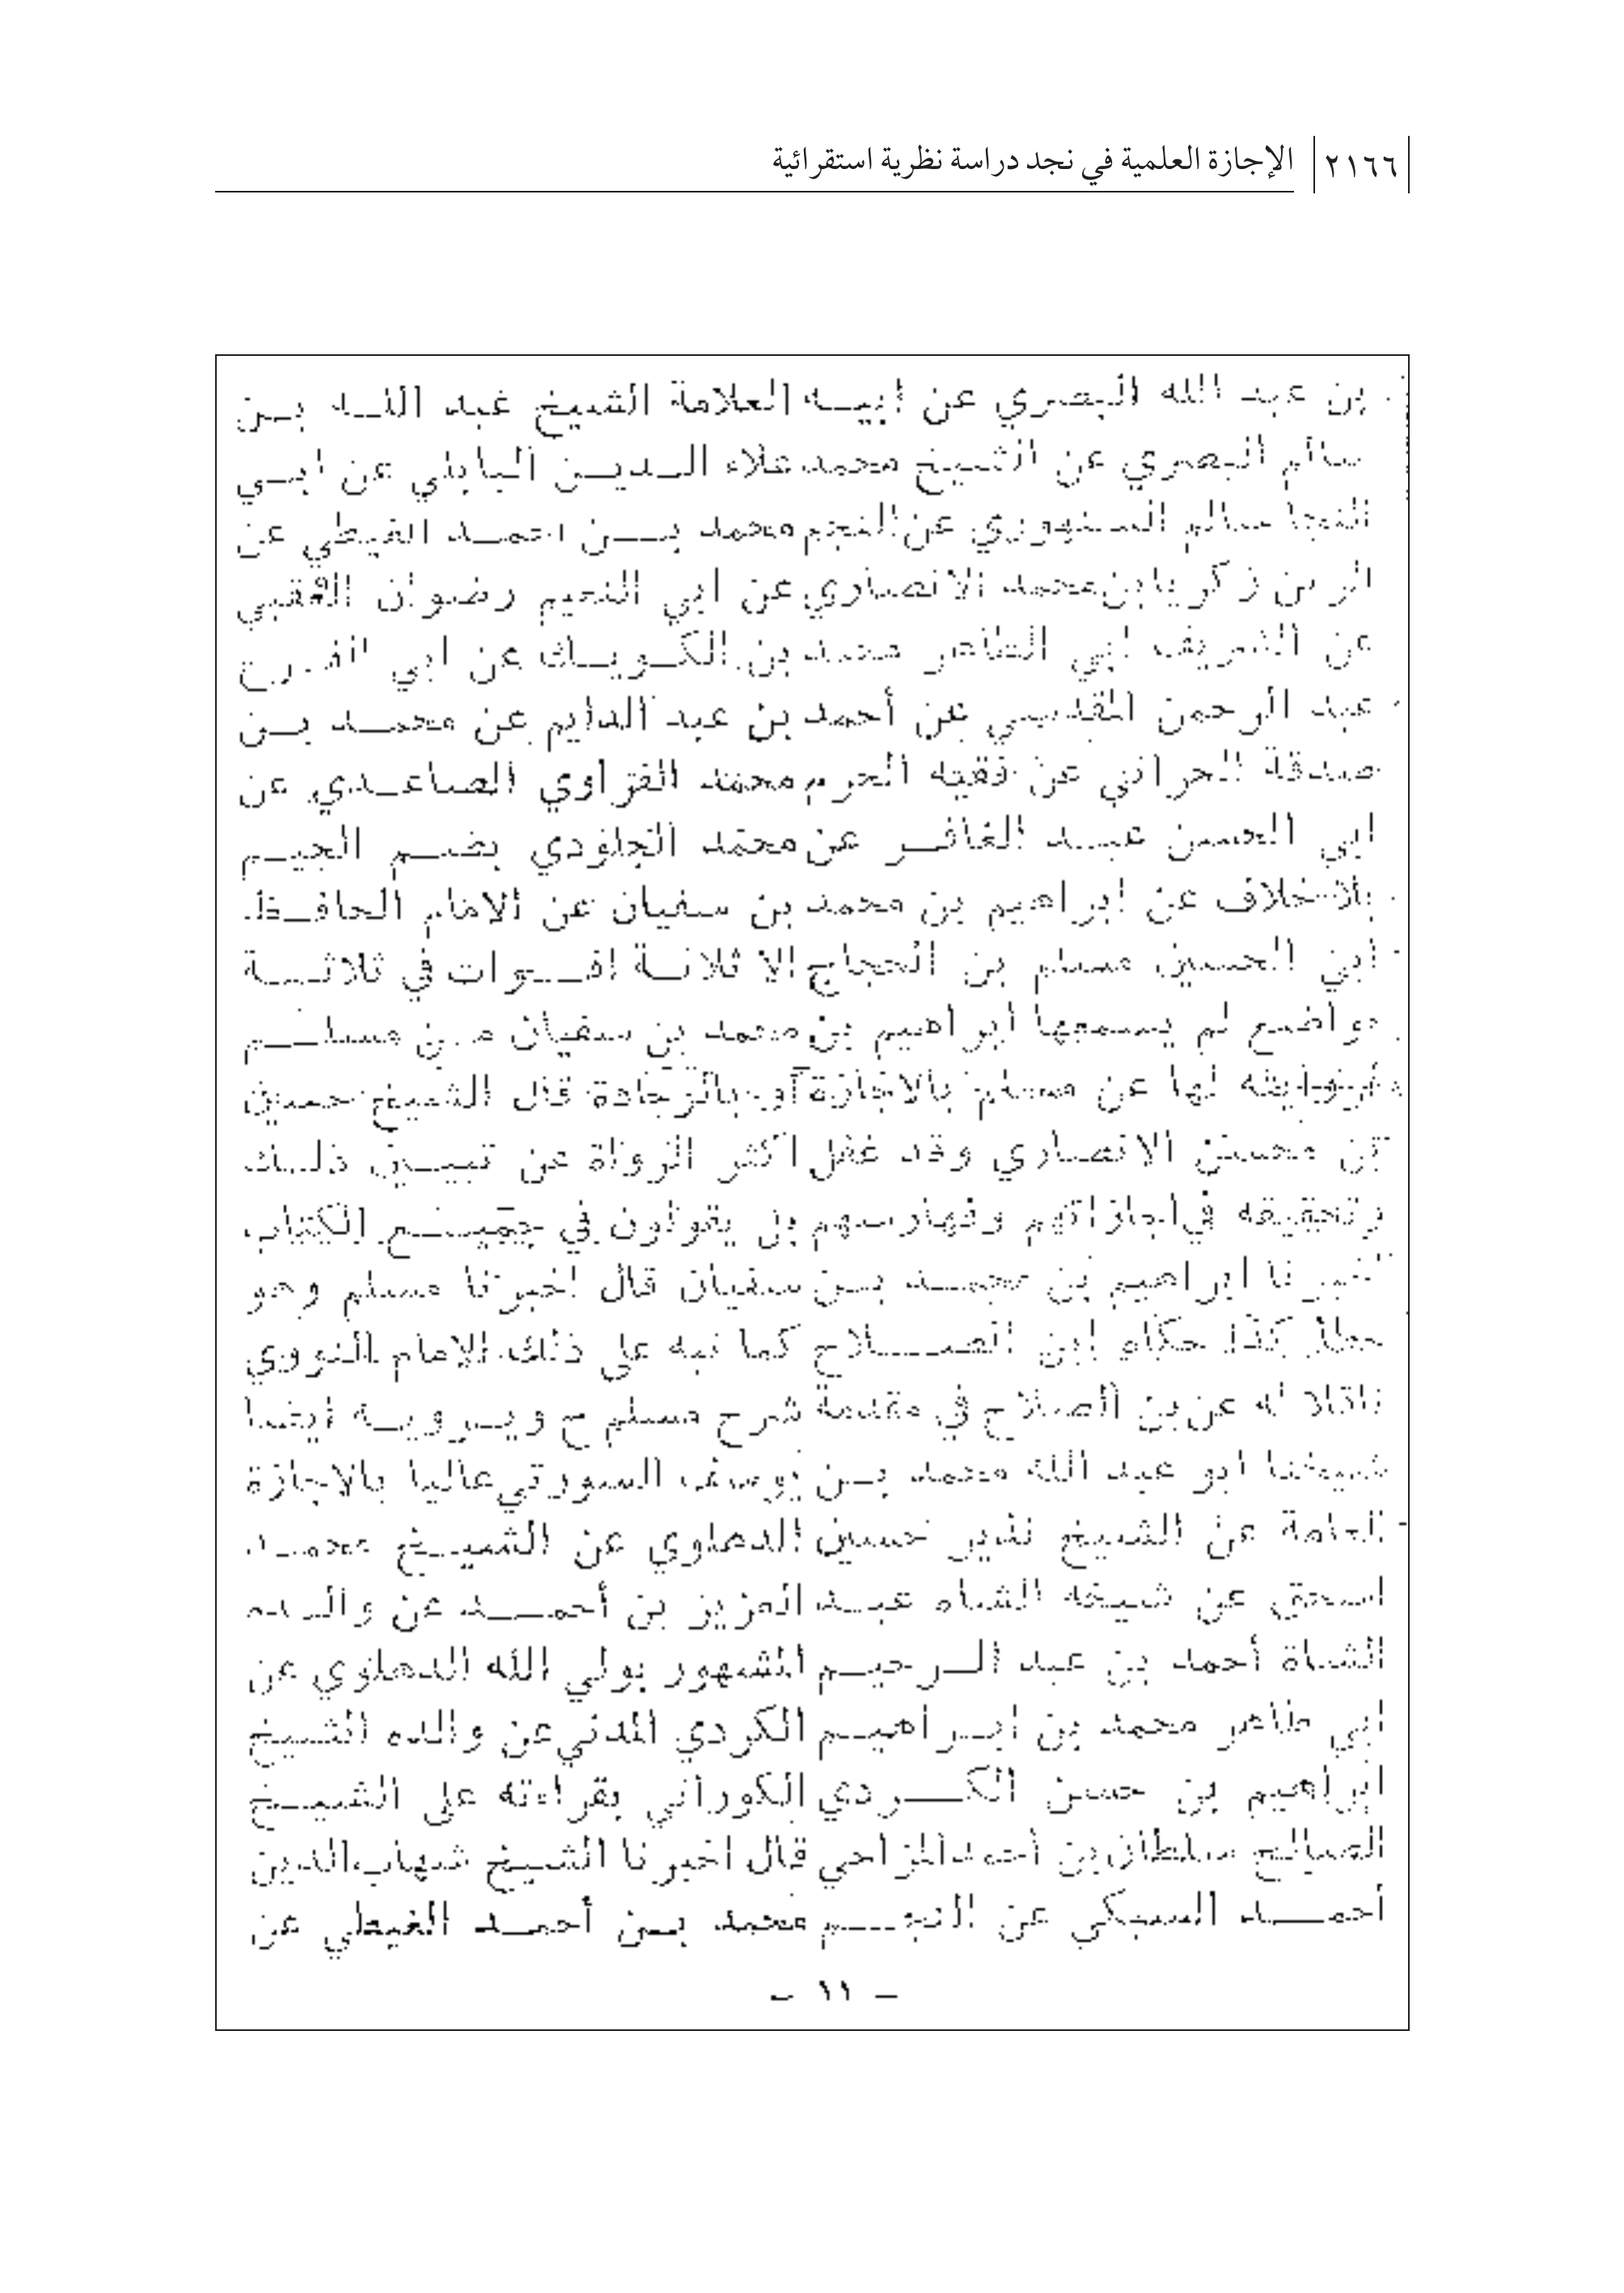 ٢١٦٦ الإجازة العلمية في نجد دراسة نظرية استقرائية
بن عبد الله البصري عن ابيه العلامة الشيخ عبد الله بن
سالم البصري عن الشيخ محمد علاء الدين البابلي عن ابي
النجا سالم السنهوري عن النجم محمد بن احمد الغيطي عن
الزين زكريا بن محمد الانصاري عن ابي النعيم رضوان العقبي
عن الشريف ابي الطاهر محمد بن الكويك عن ابي الفرج
عبد الرحمن المقدسي عن أحمد بن عبد الدايم عن محمد بن
صدقة الحراني عن فقيه الحرم محمد الفراوي الصاعدي عن
ابي الحسن عبد الغافر عن محمد الجلودي بضم الجيم
بلا خلاف عن ابراهيم بن محمد بن سفيان عن الامام الحافظ
ابي الحسين مسلم بن الحجاج الا ثلاثة افوات في ثلاثة
مواضع لم يسمعها ابراهيم بن محمد بن سفيان من مسلم
فروايته لها عن مسلم بالاجازة أو بالوجادة قال الشيخ حسين
بن محسن الانصاري وقد غفل اكثر الرواة عن تبيين ذلك
وتحقيقه في اجازاتهم وفهارسهم بل يقولون في جميع الكتاب
اخبرنا ابراهيم بن محمد بن سفيان قال اخبرنا مسلم وهو
خطأ كذا حكاه ابن الصلاح كما نبه على ذلك الإمام النووي
ناقلا له عن بن الصلاح في مقدمة شرح مسلم ح ويرويه ايضا
شيخنا ابو عبد الله محمد بن يوسف السورتي عاليا بالاجازة
العامة عن الشيخ نذير حسين الدهلوي عن الشيخ محمد
اسحق عن شيخه الشاه عبد العزيز بن أحمد عن والده
الشاة أحمد بن عبد الرحيم المشهور بولي الله الدهلوي عن
ابي طاهر محمد بن ابراهيم الكردي المدني عن والده الشيخ
ابراهيم بن حسن الكردي الكوراني بقراءته على الشيخ
الصالح سلطان بن أحمد المزاحي قال اخبرنا الشيخ شهاب الدين
أحمد السبكي عن النجم محمد بن أحمد الغيطي عن
- ١١ -